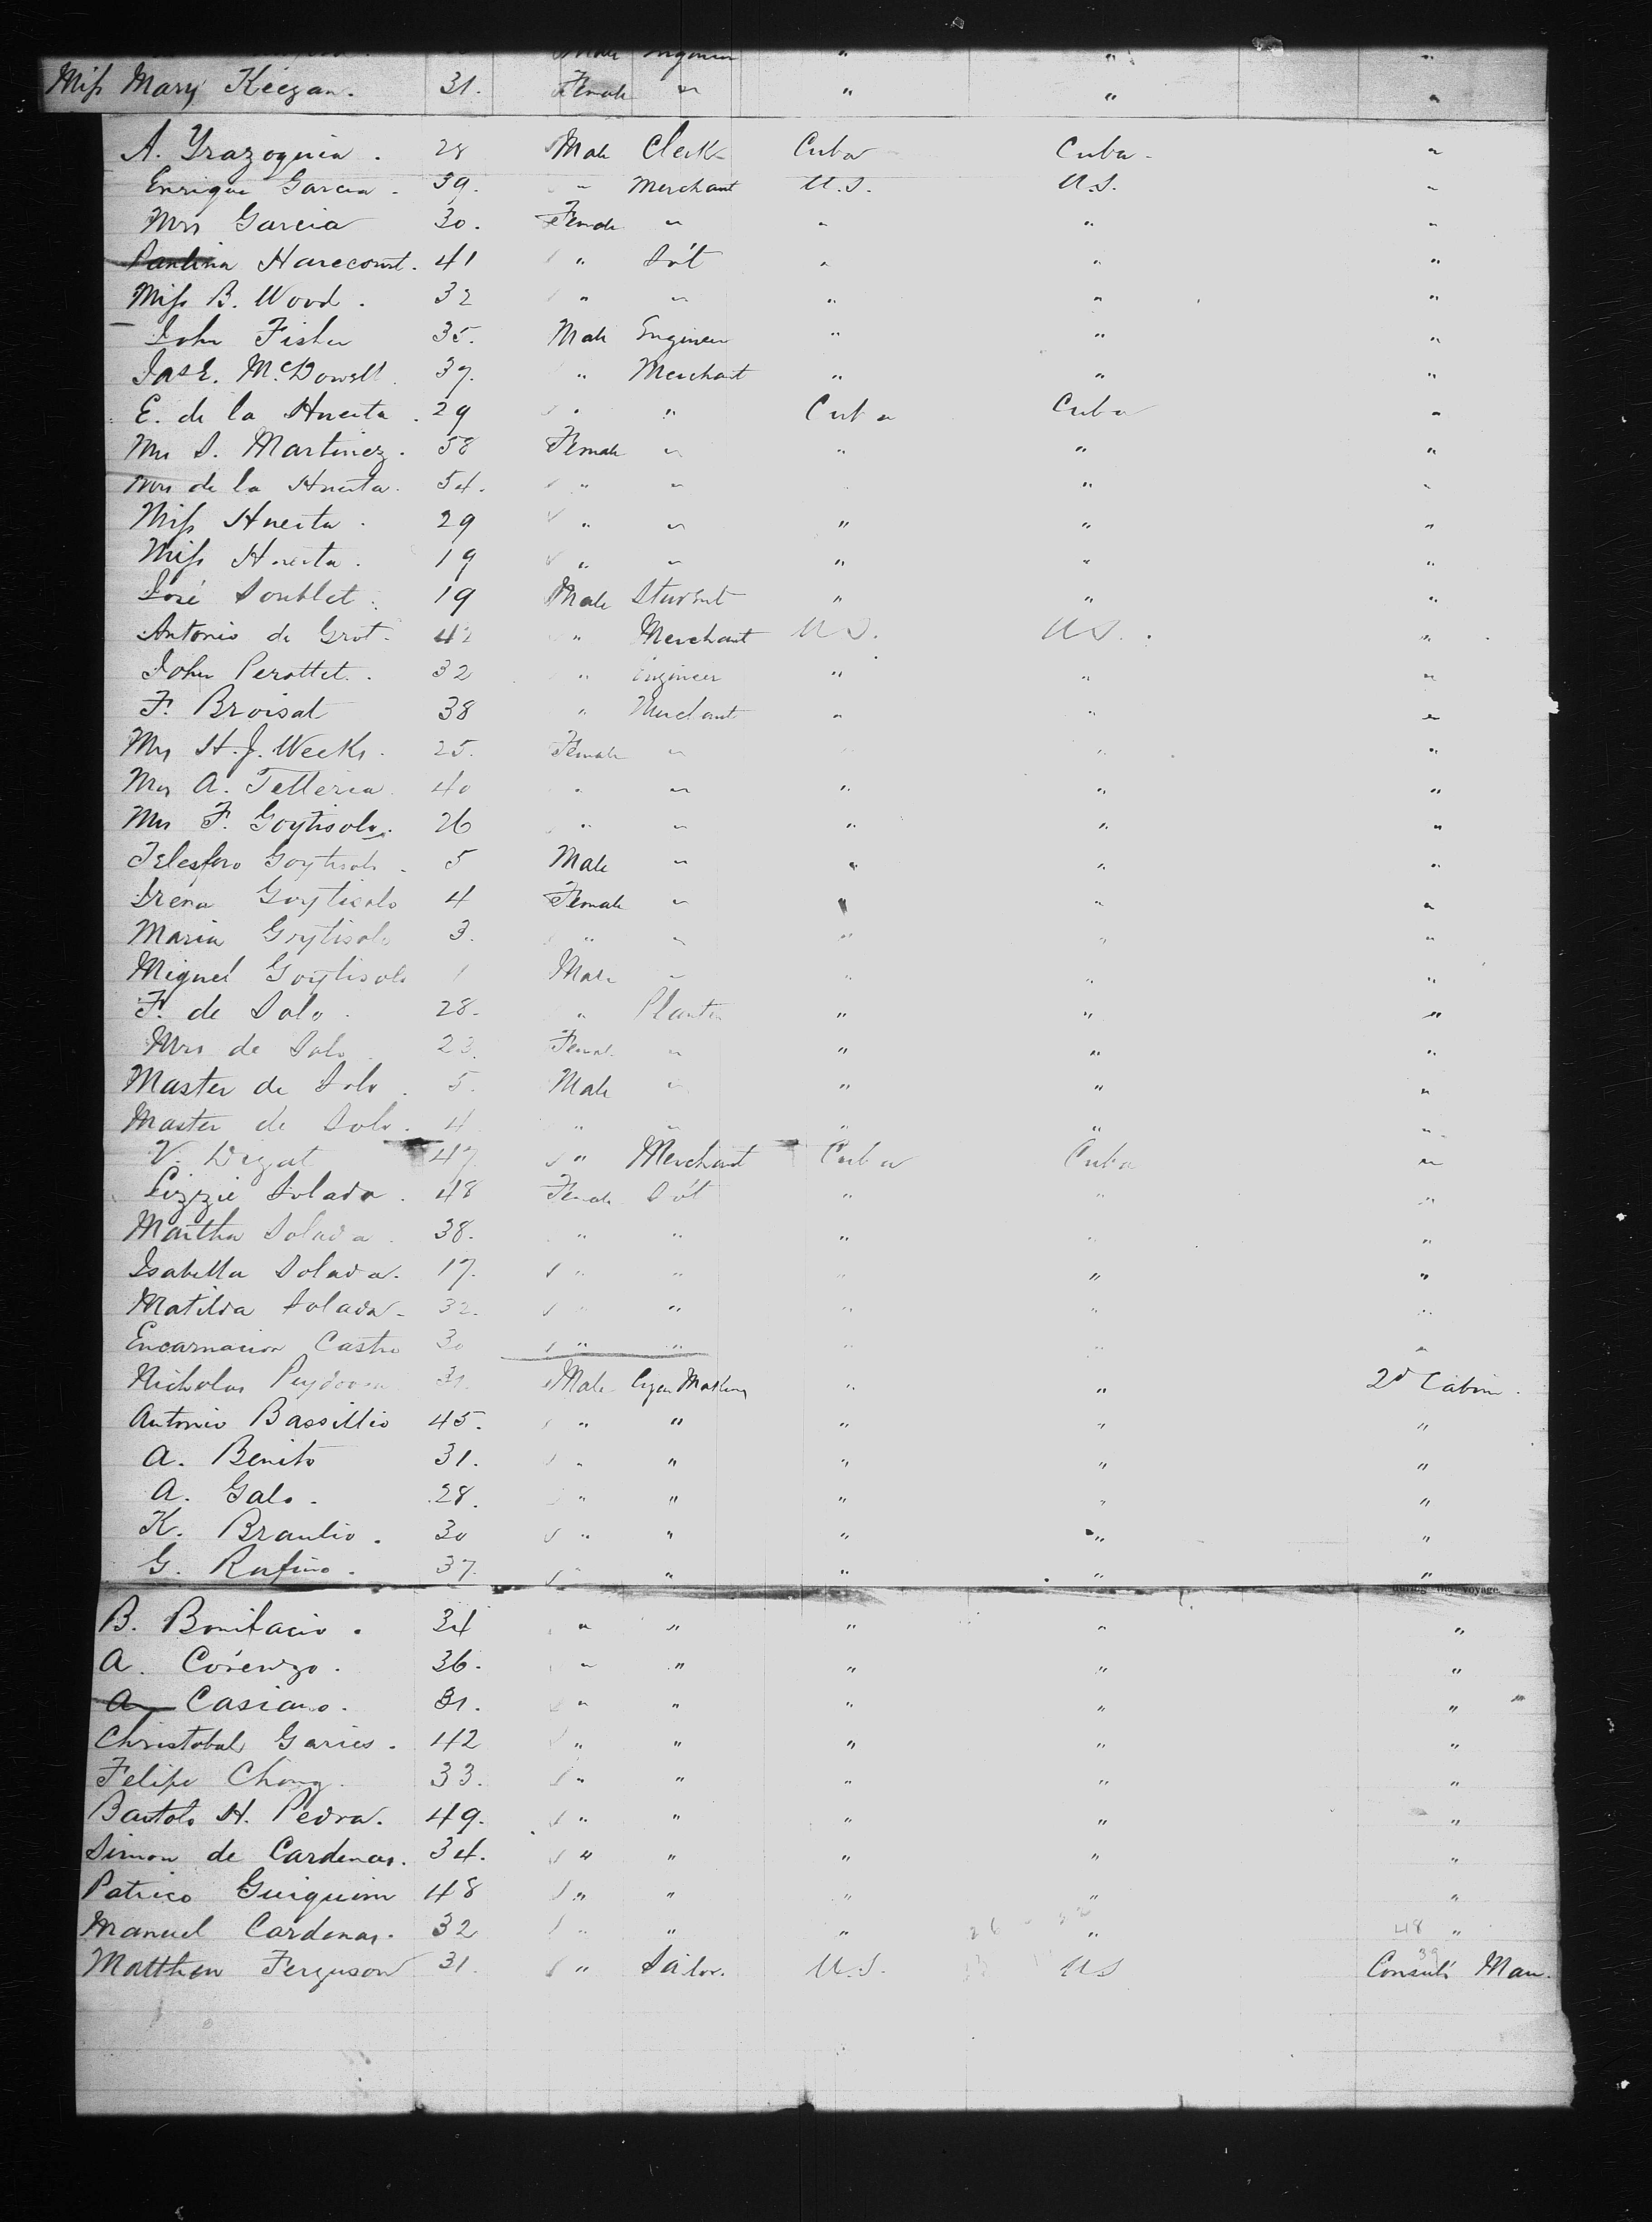 Male "
Miss Mary Keegan. 31. Female " " " "
A. Yrazoquia. 28 Male Clerk Cuba Cuba "
Enrique Garcia. 39. " Merchant U.S. U.S. "
Mrs Garcia 30. Female " " " "
Paulina Harecourt. 41 " S't " " "
Miss B. Wood. 32 " " " " "
John Fisher 35. Male Engineer " " "
Jas E. McDowell 37. " Merchant " " "
E. de la Huerta. 29 " " Cuba Cuba "
Mrs S. Martinez. 58 Female " " " "
Mrs de la Huerta. 54. " " " "
Miss Huerta. 29 " " " " "
Miss Huerta. 19 " " " " "
José Soublet. 19 Male Student " " "
Antonio de Grot. 42 " Merchant U.S. U.S. "
John Perottet. 32 " Engineer " " "
F. Broisat 38 " Merchant " " "
Mrs H. J. Weeks. 25. Female " " " "
Mrs A. Telleria. 40 " " " " "
Mrs F. Goytisolo. 26 " " " " "
Telesforo Goytisolo. 5 Male " " " "
Irena Goytisolo 4 Female " " " "
Maria Goytisolo 3. " " " " "
Miguel Goytisolo 1 Male " " " "
F. de Solo. 28. " Planter " " "
Mrs de Solo. 23. Female " " " "
Master de Solo. 5. Male " " " "
Master de Solo. 4 " " " " "
V. Digat 47 " Merchant Cuba Cuba "
Lizzie Solada. 48 Female S't " " "
Martha Solada. 38. " " " " "
Isabella Solada. 17. " " " " "
Matilda Solada. 32. " " " " "
Encarnacion Castro 30 " " " " "
Nicholas 31. Male Cigar Making " " 2d Cabin.
Antonio Bassillio 45. " " " " "
A. Benito 31. " " " " "
A. Galo. 28. " " " " "
K. Braulio. 30 " " " " "
G. Rufino. 37. " " " " "
during the voyage.
B. Bonifacio. 34 " " " " "
A. Corenzo. 36. " " " " "
A Casiano. 31. " " " " "
Christobal Garies. 42 " " " " "
Felipe Chong. 33. " " " " "
Bartolo H. Pedra. 49. " " " " "
Simon de Cardenas. 34. " " " " "
Patrico Guiquim 48 " " " " "
Manuel Cardenas. 32 " " " 26 32 " 48 "
Matthew Ferguson 31. " Sailor. U.S. US 39 Consul's Man.